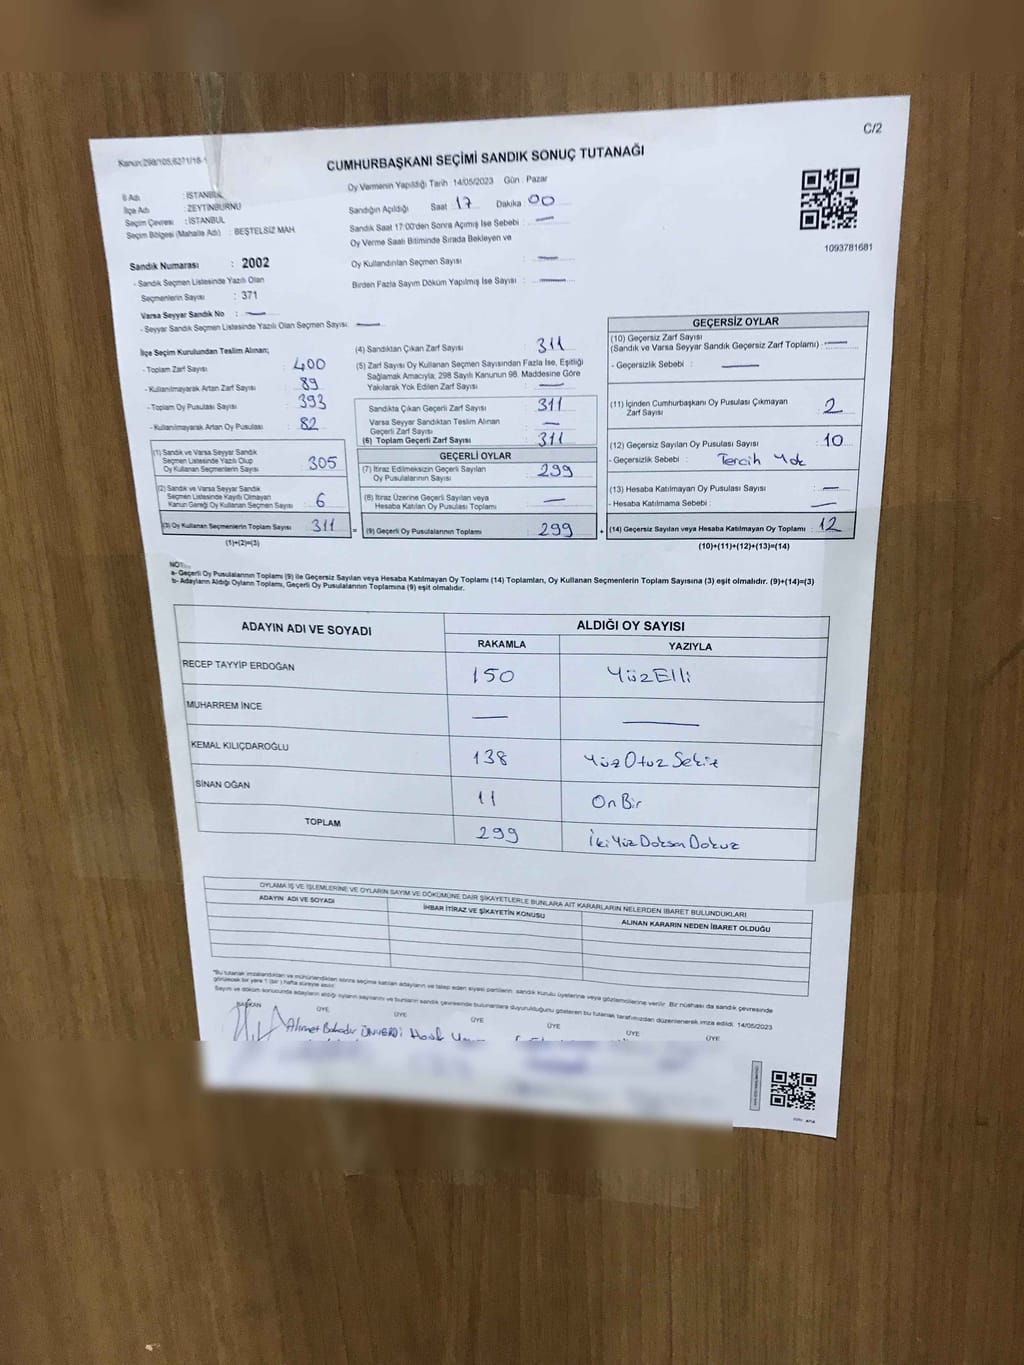 C/2
Kanun:298/105,6271/18-1
CUMHURBAŞKANI SEÇİMİ SANDIK SONUÇ TUTANAĞI
Oy Vermenin Yapıldığı Tarih : 14/05/2023 Gün : Pazar
İl Adı : İSTANBUL
İlçe Adı : ZEYTİNBURNU
Seçim Çevresi : İSTANBUL
Seçim Bölgesi (Mahalle Adı) : BEŞTELSİZ MAH.
Sandığın Açıldığı Saat 17 Dakika : 00
Sandık Saat 17:00'den Sonra Açılmış İse Sebebi : —
Oy Verme Saati Bitiminde Sırada Bekleyen ve
Oy Kullandırılan Seçmen Sayısı : —
Birden Fazla Sayım Döküm Yapılmış İse Sayısı : —
1093781681
Sandık Numarası : 2002
- Sandık Seçmen Listesinde Yazılı Olan
Seçmenlerin Sayısı : 371
Varsa Seyyar Sandık No : —
- Seyyar Sandık Seçmen Listesinde Yazılı Olan Seçmen Sayısı : —
İlçe Seçim Kurulundan Teslim Alınan;
- Toplam Zarf Sayısı : 400
- Kullanılmayarak Artan Zarf Sayısı : 89
- Toplam Oy Pusulası Sayısı : 393
- Kullanılmayarak Artan Oy Pusulası : 82
(1) Sandık ve Varsa Seyyar Sandık
Seçmen Listesinde Yazılı Olup
Oy Kullanan Seçmenlerin Sayısı : 305
(2) Sandık ve Varsa Seyyar Sandık
Seçmen Listesinde Kayıtlı Olmayan
Kanun Gereği Oy Kullanan Seçmen Sayısı : 6
(3) Oy Kullanan Seçmenlerin Toplam Sayısı : 311
(1)+(2)=(3)
(4) Sandıktan Çıkan Zarf Sayısı : 311
(5) Zarf Sayısı Oy Kullanan Seçmen Sayısından Fazla İse, Eşitliği
Sağlamak Amacıyla; 298 Sayılı Kanunun 98. Maddesine Göre
Yakılarak Yok Edilen Zarf Sayısı : —
Sandıkta Çıkan Geçerli Zarf Sayısı : 311
Varsa Seyyar Sandıktan Teslim Alınan
Geçerli Zarf Sayısı : —
(6) Toplam Geçerli Zarf Sayısı : 311
GEÇERLİ OYLAR
(7) İtiraz Edilmeksizin Geçerli Sayılan
Oy Pusulalarının Sayısı : 299
(8) İtiraz Üzerine Geçerli Sayılan veya
Hesaba Katılan Oy Pusulası Toplamı : —
= (9) Geçerli Oy Pusulalarının Toplamı : 299 +
GEÇERSİZ OYLAR
(10) Geçersiz Zarf Sayısı
(Sandık ve Varsa Seyyar Sandık Geçersiz Zarf Toplamı) : —
- Geçersizlik Sebebi : —
(11) İçinden Cumhurbaşkanı Oy Pusulası Çıkmayan
Zarf Sayısı : 2
(12) Geçersiz Sayılan Oy Pusulası Sayısı : 10
- Geçersizlik Sebebi : Tercih Yok
(13) Hesaba Katılmayan Oy Pusulası Sayısı : —
- Hesaba Katılmama Sebebi : —
(14) Geçersiz Sayılan veya Hesaba Katılmayan Oy Toplamı : 12
(10)+(11)+(12)+(13)=(14)
NOT:
a- Geçerli Oy Pusulalarının Toplamı (9) ile Geçersiz Sayılan veya Hesaba Katılmayan Oy Toplamı (14) Toplamları, Oy Kullanan Seçmenlerin Toplam Sayısına (3) eşit olmalıdır. (9)+(14)=(3)
b- Adayların Aldığı Oyların Toplamı, Geçerli Oy Pusulalarının Toplamına (9) eşit olmalıdır.
ADAYIN ADI VE SOYADI ALDIĞI OY SAYISI
RAKAMLA YAZIYLA
RECEP TAYYİP ERDOĞAN 150 YüzElli
MUHARREM İNCE — —
KEMAL KILIÇDAROĞLU 138 Yüz Otuz Sekiz
SİNAN OĞAN 11 On Bir
TOPLAM 299 İki Yüz Doksan Dokuz
OYLAMA İŞ VE İŞLEMLERİNE VE OYLARIN SAYIM VE DÖKÜMÜNE DAİR ŞİKAYETLERLE BUNLARA AİT KARARLARIN NELERDEN İBARET BULUNDUKLARI
ADAYIN ADI VE SOYADI İHBAR İTİRAZ VE ŞİKAYETİN KONUSU ALINAN KARARIN NEDEN İBARET OLDUĞU
"Bu tutanak imzalandıktan ve mühürlendikten sonra seçime katılan adayların ve talep eden siyasi partilerin, sandık kurulu üyelerine veya gözlemcilerine verilir. Bir nüshası da sandık çevresinde
görülecek bir yere 1 (bir) hafta süreyle asılır.
Sayım ve döküm sonucunda adayların aldığı oyların sayılarını ve bunların sandık çevresinde bulunanlara duyurulduğunu gösteren bu tutanak tarafımızdan düzenlenerek imza edildi. 14/05/2023
BAŞKAN ÜYE ÜYE ÜYE ÜYE ÜYE ÜYE
Ahmet Bahadır ÜNVERDİ